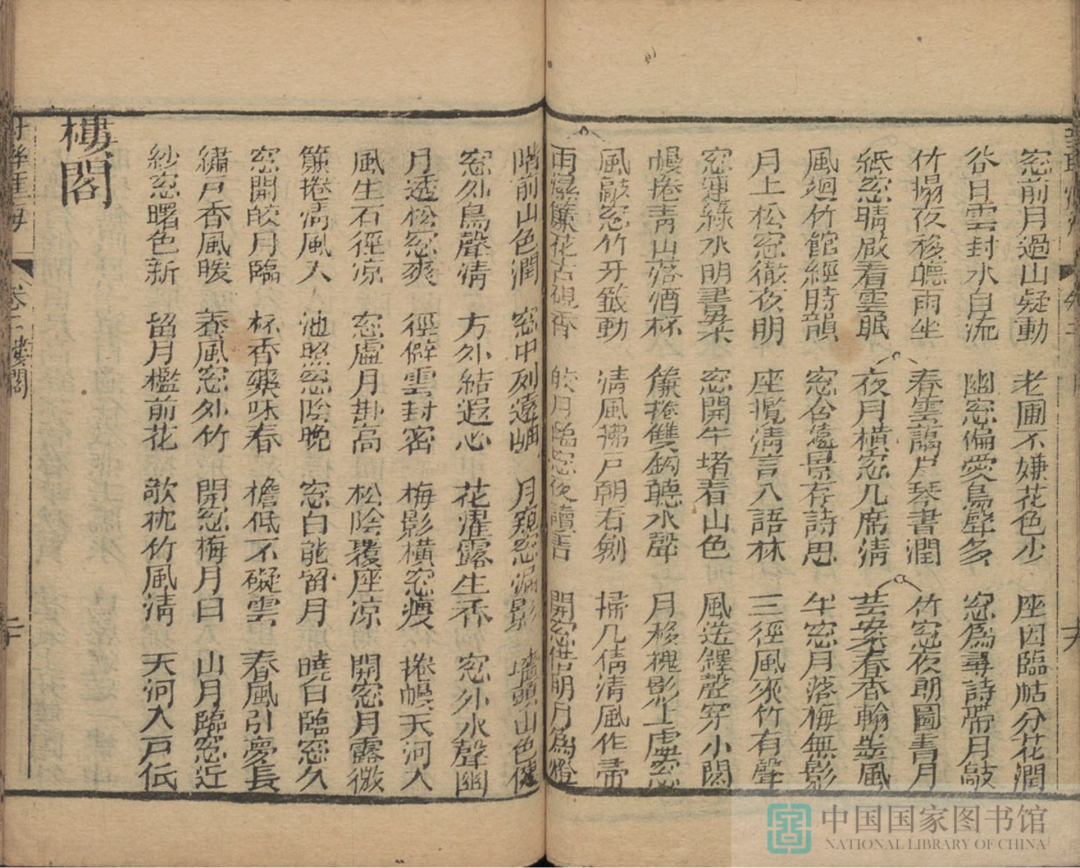 窓前月過山疑動　老圃不嫌花色少　座因臨帖分花潤
谷日雲封水自流　幽窓偏愛鳥聲多　窓為尋詩帶月敲
竹榻夜移聽雨坐　春雲藹戶琴書潤　竹窓夜朗圖書月
紙窓晴啟看雲眠　夜月橫窓几席清　芸案春香翰墨風
風迴竹館經時韻　窓含遠景存詩思　午窓月落梅無影
月上松窓徹夜明　座攬清言入語林　三徑風來竹有聲
窓連綠水明書案　窓開半堵看山色　風送繹聲穿小閣
幔捲青山落酒杯　簾捲雙鈎聽水聲　月移槐影上虛窓
風敲窓竹牙籤動　清風拂戶朝看劍　掃几倩清風作帚
雨濕簾花古硯香　皎月臨窓夜讀書　開窓借明月為燈
階前山色潤　窓中列遠岫　月窺窓漏影　墻頭山色健
窓外鳥聲清　方外結遐心　花濯露生香　窓外水聲幽
月透松窓爽　徑僻雲封密　梅影橫窓瘦　捲幔天河入
風生石徑凉　窓虛月掛高　松陰覆座凉　開窓月露微
簾捲清風入　池照窓陰晚　窓白能留月　曉白臨窓久
窓開皎月臨　杯香藥味春　檐低不礙雲　春風引夢長
繡戶香風暖　春風窓外竹　開窓梅月白　山月臨窓近
紗窓曙色新　留月檻前花　欹枕竹風清　天河入戶低
樓閣
卷二 樓閣
二十
十九
中国国家图书馆
NATIONAL LIBRARY OF CHINA